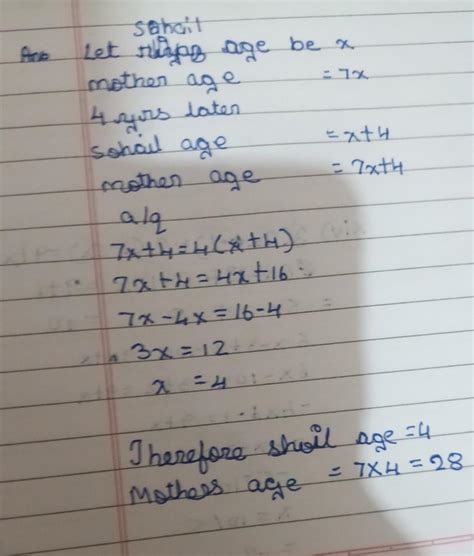 Sohail
Ans Let age be x
mother age = 7x
4 yrs later
sohail age = x+4
mother age = 7x+4
a/q
7x+4=4(x+4)
7x+4=4x+16
7x-4x=16-4
3x=12
x = 4
Therefore shoil age =4
Mothers age = 7x4 = 28